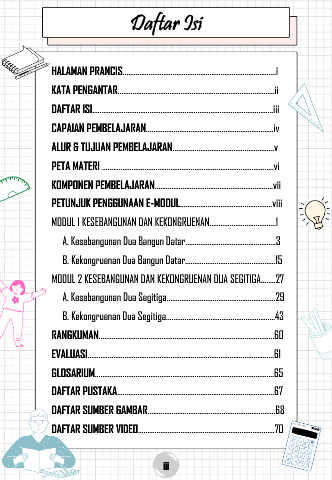 Daftar Isi
HALAMAN PRANCIS.......................................................i
KATA PENGANTAR.......................................................ii
DAFTAR ISI.......................................................iii
CAPAIAN PEMBELAJARAN.......................................................iv
ALUR & TUJUAN PEMBELAJARAN.............................................v
PETA MATERI .......................................................vi
KOMPONEN PEMBELAJARAN.................................................vii
PETUNJUK PENGGUNAAN E-MODUL....................................viii
MODUL 1 KESEBANGUNAN DAN KEKONGRUENAN..........................1
A. Kesebangunan Dua Bangun Datar....................................3
B. Kekongruenan Dua Bangun Datar....................................15
MODUL 2 KESEBANGUNAN DAN KEKONGRUENAN DUA SEGITIGA........27
A. Kesebangunan Dua Segitiga............................................29
B. Kekongruenan Dua Segitiga............................................43
RANGKUMAN.......................................................60
EVALUASI.......................................................61
GLOSARIUM.......................................................65
DAFTAR PUSTAKA.......................................................67
DAFTAR SUMBER GAMBAR.................................................68
DAFTAR SUMBER VIDEO.................................................70